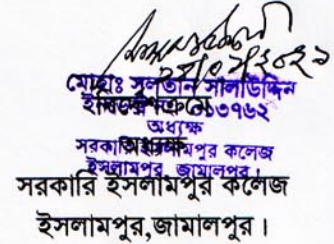 মোহাঃ সুলতান সালাউদ্দিন
নির্দেশক্রমে
অধ্যক্ষ
অধ্যক্ষ
সরকারি ইসলামপুর কলেজ
ইসলামপুর, জামালপুর।
সরকারি ইসলামপুর কলেজ
ইসলামপুর,জামালপুর।